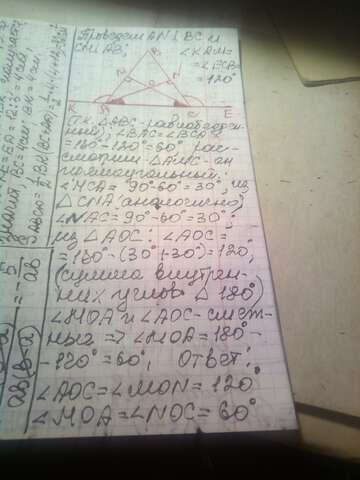 Проведем AN⊥BC и
CM⊥AB;
∠KAM=
=∠ECB=
=120°
B
M
N
O
K
A
C
E
Т.К. △ABC - равнобедрен-
ный, ∠BAC=∠BCA=
=180°-120°=60°, рас-
смотрим △AMC - он
прямоугольный:
∠MCA=90°-60°=30°, из
△CNA (аналогично)
∠NAC=90°-60°=30°;
из △AOC: ∠AOC=
=180°-(30°+30°)=120°;
(сумма внутрен-
них углов △ 180°)
∠MOA и ∠AOC - смеж-
ные => ∠MOA=180°-
-120°=60°, Ответ:
∠AOC=∠MON=120°
∠MOA=∠NOC=60°
5
ab
ab(b-a)